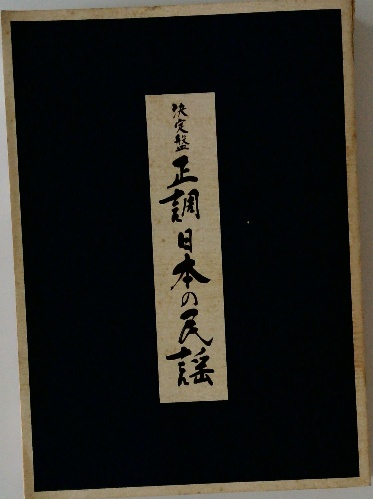 決定盤 正調日本の民謡